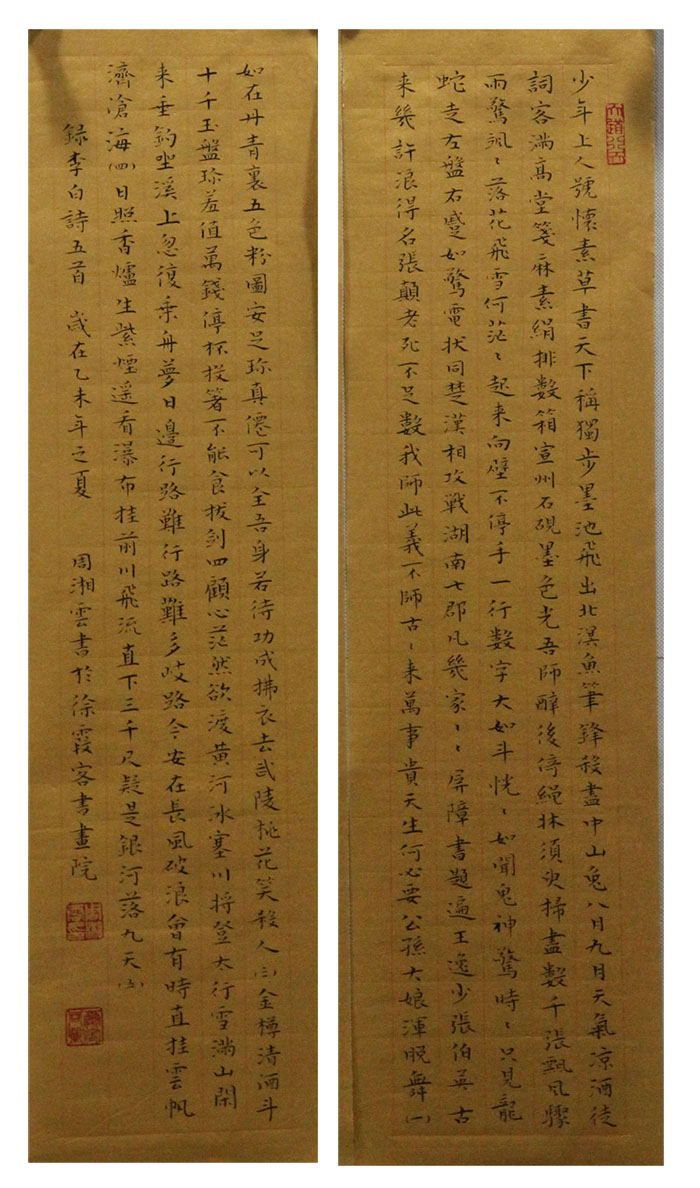 少年上人號懷素草書天下稱獨步墨池飛出北溟魚筆鋒殺盡中山兔八月九月天氣涼酒徒
詞客滿高堂箋麻素絹排數箱宣州石硯墨色光吾師醉後倚繩牀須臾掃盡數千張飄風驟
雨驚颯〻落花飛雪何茫〻起來向壁不停手一行數字大如斗恍〻如聞鬼神驚時〻只見龍
蛇走左盤右蹙如驚電狀同楚漢相攻戰湖南七郡凡幾家〻〻屏障書題遍王逸少張伯英古
來幾許浪得名張顛老死不足數我師此義不師古〻來萬事貴天生何必要公孫大娘渾脫舞(一)
如在丹青裏五色粉圖安足珍真僊可以全吾身若待功成拂衣去武陵桃花笑殺人(三)金樽清酒斗
十千玉盤珍羞值萬錢停杯投箸不能食拔劍四顧心茫然欲渡黃河冰塞川將登太行雪滿山閑
来垂釣坐溪上忽復乘舟夢日邊行路難行路難多岐路今安在長風破浪會有時直挂雲帆
濟滄海(四)日照香爐生紫煙遙看瀑布挂前川飛流直下三千尺疑是銀河落九天(五)
録李白詩五首 歲在乙未年之夏 周湘雲書於徐霞客書畫院